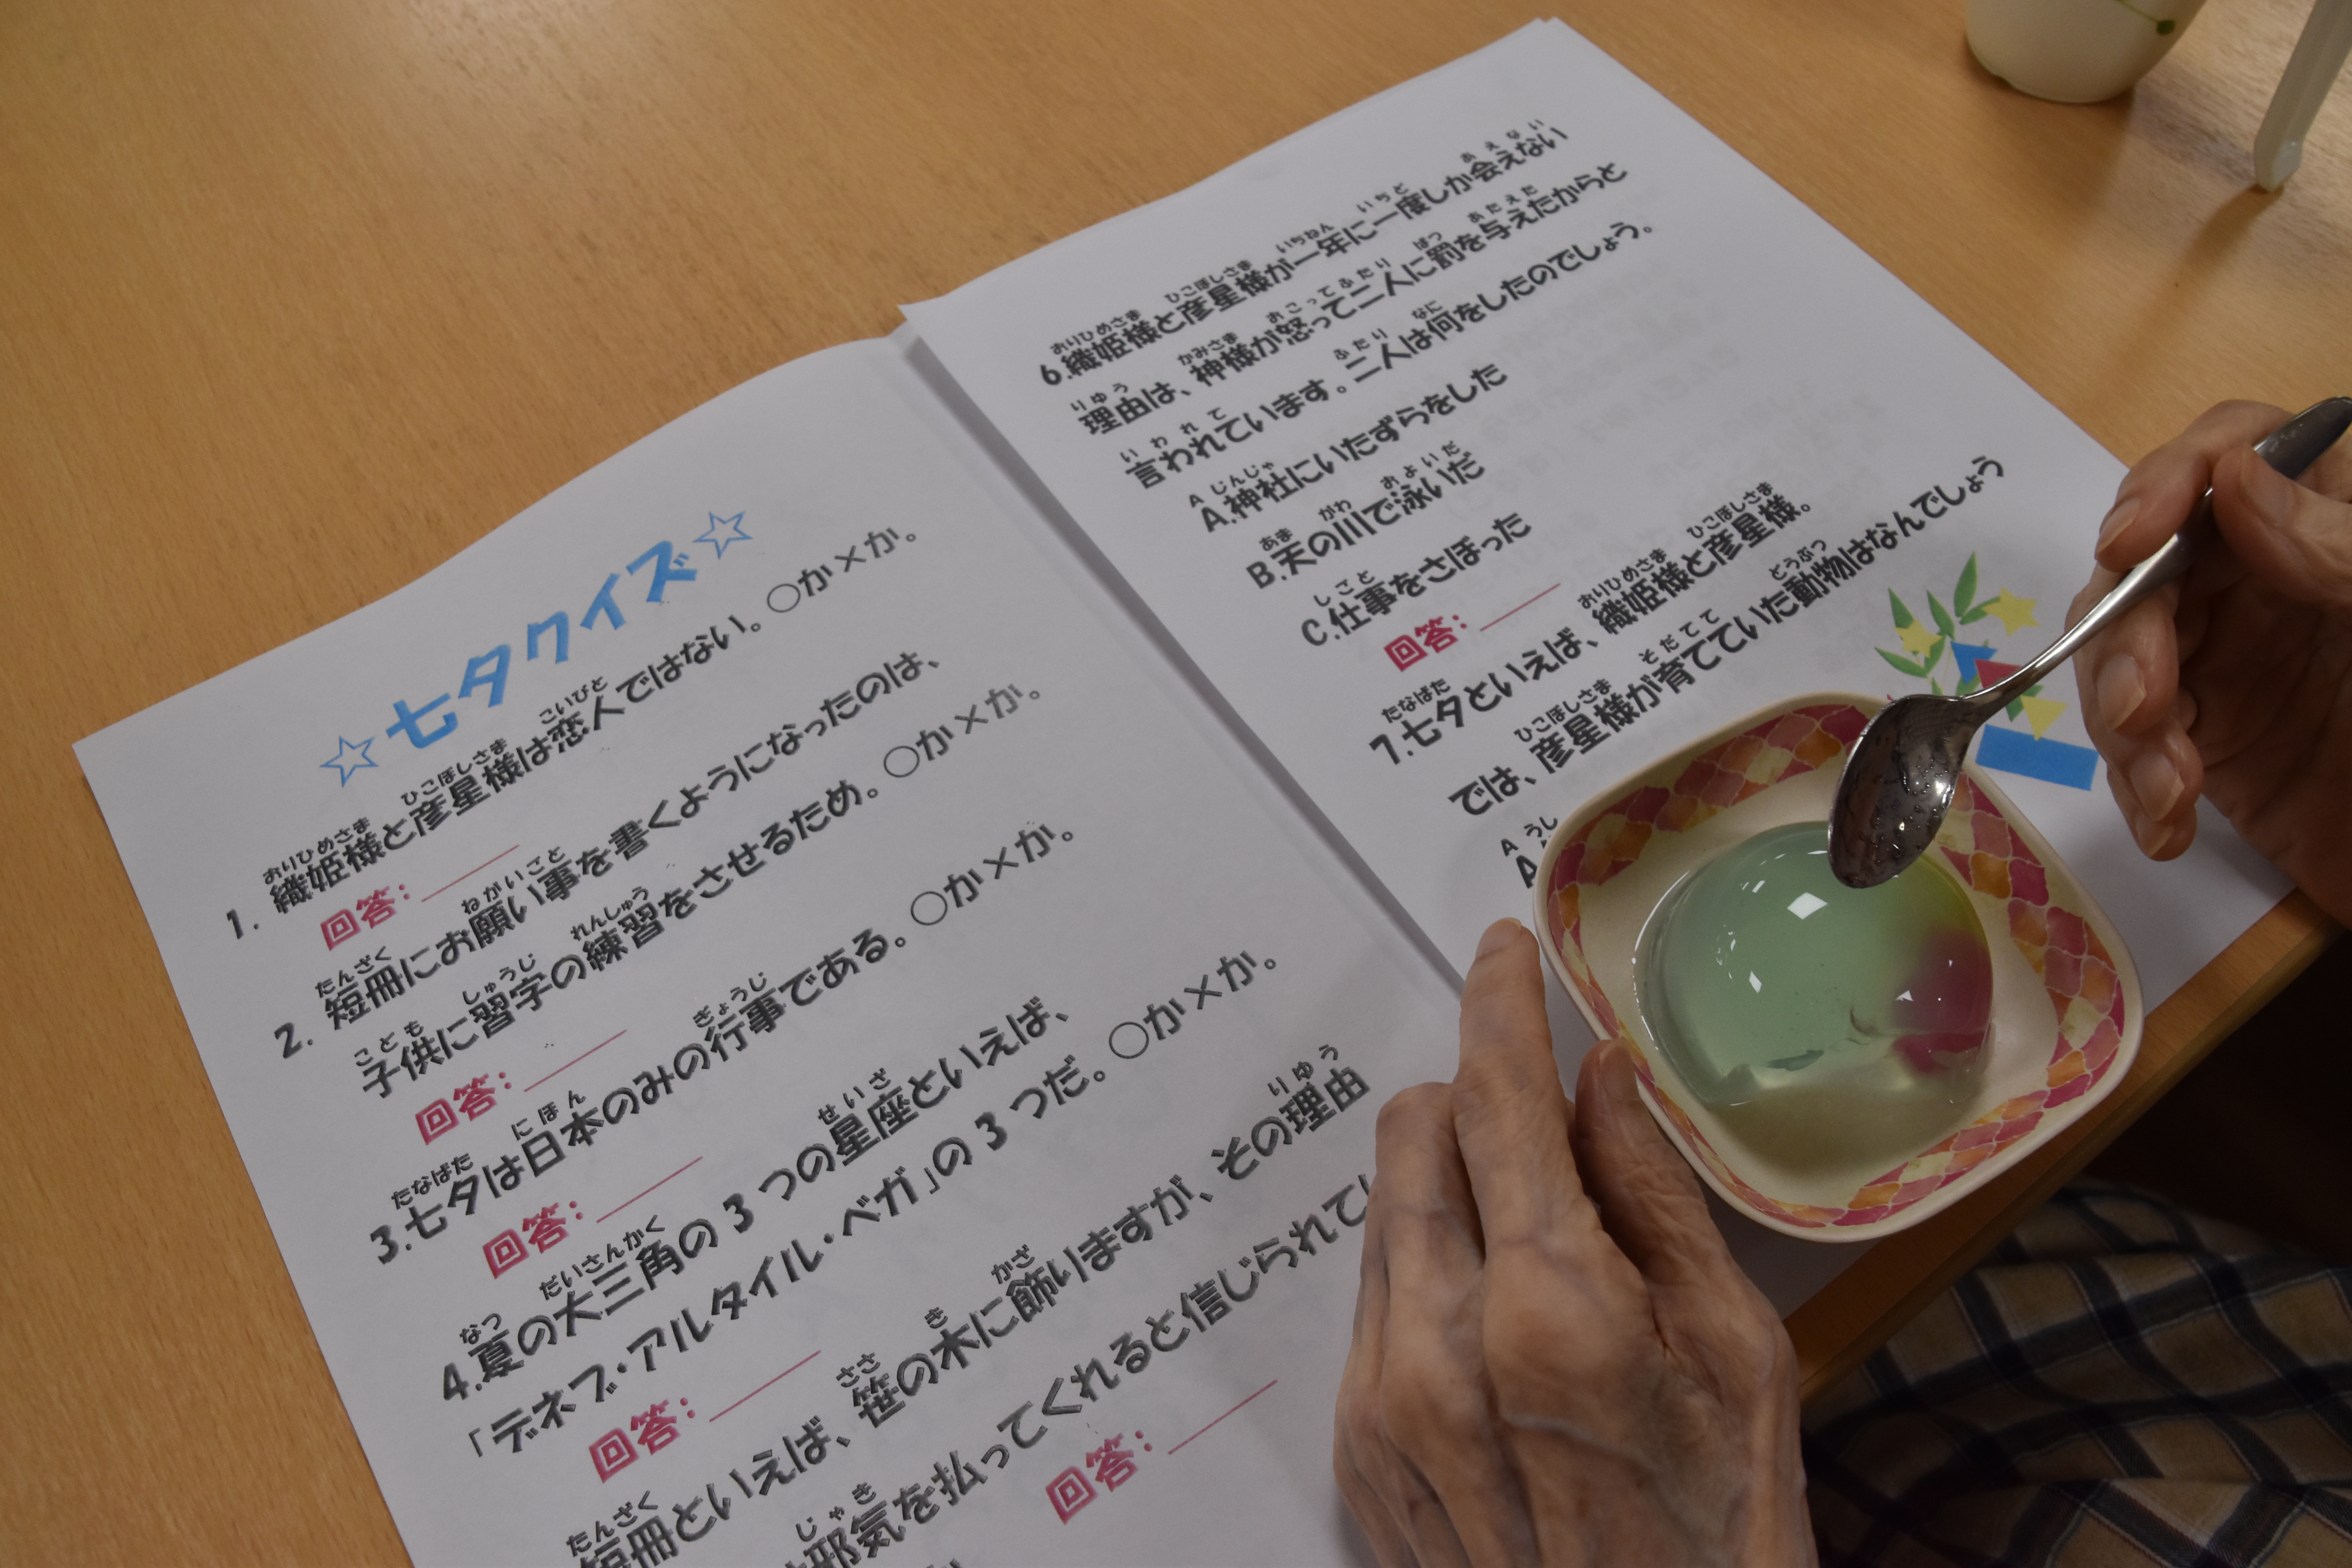 ☆七夕クイズ☆
1. 織姫様と彦星様は恋人ではない。○か×か。
回答:
2. 短冊にお願い事を書くようになったのは、
子供に習字の練習をさせるため。○か×か。
回答:
3.七夕は日本のみの行事である。○か×か。
回答:
4.夏の大三角の3つの星座といえば、
「デネブ・アルタイル・ベガ」の3つだ。○か×か。
回答:
短冊といえば、笹の木に飾りますが、その理由
邪気を払ってくれると信じられて
回答:
6.織姫様と彦星様が一年に一度しか会えない
理由は、神様が怒って二人に罰を与えたからと
言われています。二人は何をしたのでしょう。
A.神社にいたずらをした
B.天の川で泳いだ
C.仕事をさぼった
回答:
7.七夕といえば、織姫様と彦星様。
では、彦星様が育てていた動物はなんでしょう
A